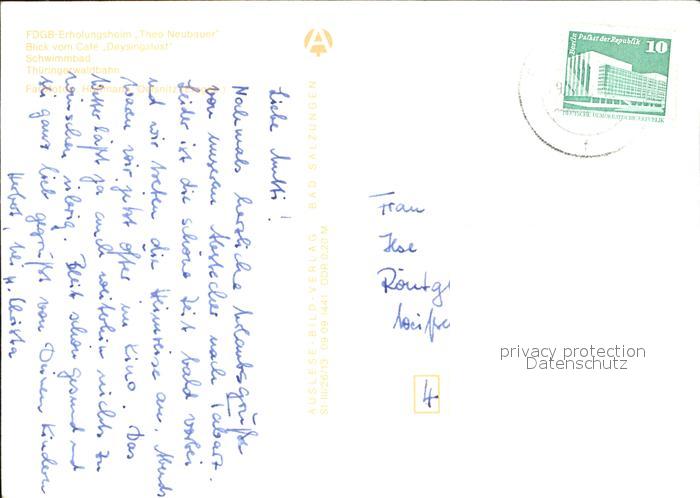 FDGB-Erholungsheim „Theo Neubauer"
Blick vom Café „Deysingslust"
Schwimmbad
Thüringerwaldbahn
Liebe Mutti!
Nochmals herzliche Urlaubsgrüße
von unserem Abstecher nach Tabarz.
Leider ist die schöne Zeit bald vorbei
und wir treten die Heimreise an. Abends
waren wir jetzt öfter im Kino. Das
Wetter läßt ja auch weiterhin nichts zu
wünschen übrig. Bleib schön gesund und
sei ganz lieb gegrüßt von Deinen Kindern
AUSLESE-BILD-VERLAG BAD SALZUNGEN
09 09 1441 DDR 0,20 M
Berlin Palast der Republik
10
DEUTSCHE DEMOKRATISCHE REPUBLIK
Frau
Ilse
Röntg
4
privacy protection
Datenschutz